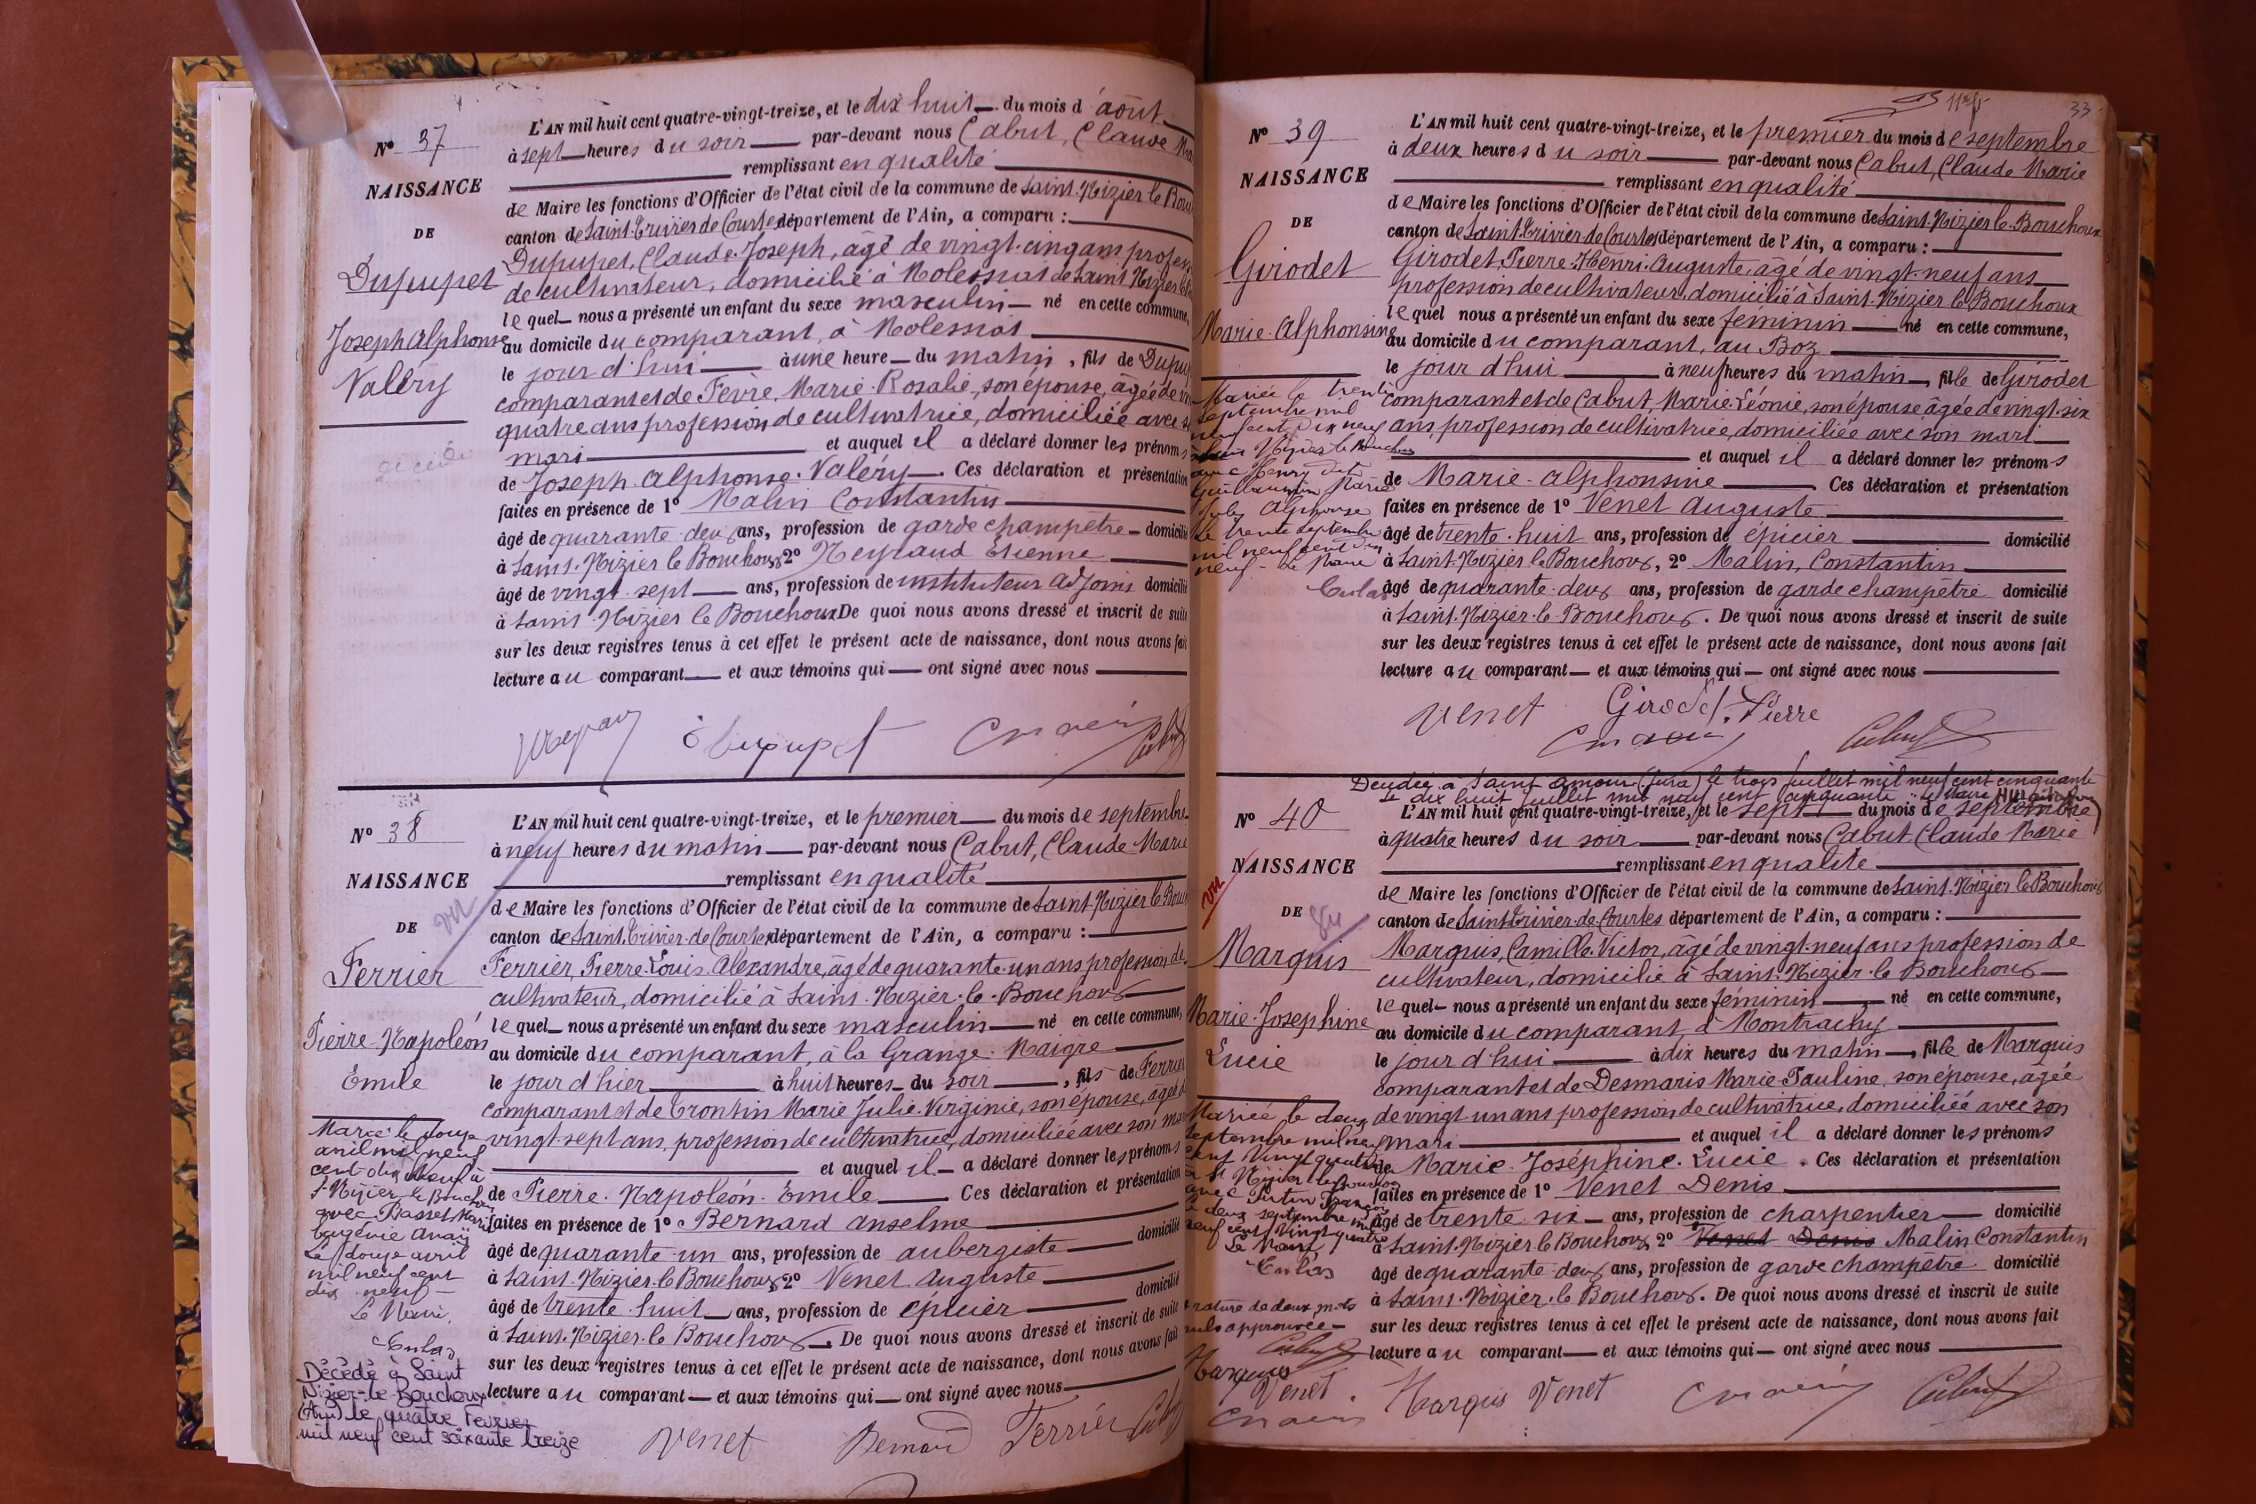 N° 37
NAISSANCE
DE
Dupupet
Joseph Alphonse
Valéry
décédé
L'AN mil huit cent quatre-vingt-treize, et le dix huit du mois d'août
à sept heures du soir par-devant nous Cabut, Claude
remplissant en qualité
de Maire les fonctions d'Officier de l'état civil de la commune de Saint-Nizier le
canton de Saint-Trivier de Courtes département de l'Ain, a comparu :
Dupupet, Claude-Joseph, âgé de vingt-cinq ans
de cultivateur, domicilié à Molessiat de Saint Nizier
lequel nous a présenté un enfant du sexe masculin né en cette commune,
au domicile du comparant, à Molessiat
le jour d'hui à une heure du matin, fils de
comparant et de Fèvre, Marie-Rosalie, son épouse, âgée de
quatre ans profession de cultivatrice, domiciliée avec
mari et auquel il a déclaré donner les prénoms
de Joseph-Alphonse-Valéry. Ces déclaration et présentation
faites en présence de 1° Malin Constantin
âgé de quarante-deux ans, profession de garde champêtre domicilié
à Saint-Nizier le Bouchoux, 2° Neyraud Etienne
âgé de vingt-sept ans, profession de instituteur adjoint domicilié
à Saint-Nizier le Bouchoux De quoi nous avons dressé et inscrit de suite
sur les deux registres tenus à cet effet le présent acte de naissance, dont nous avons fait
lecture au comparant et aux témoins qui ont signé avec nous
Dupupet
N° 38
NAISSANCE
DE
vu
Ferrier
Pierre-Napoléon
Émile
Marié le douze
avril mil neuf
cent dix neuf à
St-Nizier le Bouchoux
avec Basset Marie
Eugénie Anaïs
Le douze avril
mil neuf cent
dix neuf
Le Maire,
Décédé à Saint
Nizier-le-Bouchoux
(Ain) le quatre Février
mil neuf cent soixante treize
L'AN mil huit cent quatre-vingt-treize, et le premier du mois de septembre
à neuf heures du matin par-devant nous Cabut, Claude-Marie
remplissant en qualité
de Maire les fonctions d'Officier de l'état civil de la commune de Saint-Nizier le
canton de Saint-Trivier-de-Courtes département de l'Ain, a comparu :
Ferrier, Pierre-Louis-Alexandre, âgé de quarante-un ans profession de
cultivateur, domicilié à Saint-Nizier-le-Bouchoux
lequel nous a présenté un enfant du sexe masculin né en cette commune,
au domicile du comparant, à la Grange-Maigre
le jour d'hier à huit heures du soir, fils de Ferrier
comparant et de Trontin Marie Julie-Virginie, son épouse, âgée de
vingt-sept ans, profession de cultivatrice, domiciliée avec son mari
et auquel il a déclaré donner les prénoms
de Pierre-Napoléon-Émile Ces déclaration et présentation
faites en présence de 1° Bernard Anselme
âgé de quarante-un ans, profession de aubergiste domicilié
à Saint-Nizier-le-Bouchoux, 2° Venet Auguste
âgé de trente-huit ans, profession de épicier domicilié
à Saint-Nizier-le-Bouchoux. De quoi nous avons dressé et inscrit de suite
sur les deux registres tenus à cet effet le présent acte de naissance, dont nous avons fait
lecture au comparant et aux témoins qui ont signé avec nous
Venet Bernard Ferrier
33
N° 39
NAISSANCE
DE
Girodet
Marie-Alphonsine
Mariée le trente
septembre mil
neuf cent dix neuf
Nizier le Bouchoux
avec Henry dit
Guillaumin Marie
Jules Alphonse
Le trente septembre
mil neuf cent dix
neuf - Le Maire
L'AN mil huit cent quatre-vingt-treize, et le premier du mois de septembre
à deux heures du soir par-devant nous Cabut, Claude Marie
remplissant en qualité
de Maire les fonctions d'Officier de l'état civil de la commune de Saint-Nizier le Bouchoux
canton de Saint-Trivier de Courtes département de l'Ain, a comparu :
Girodet, Pierre-Henri-Auguste, âgé de vingt-neuf ans
profession de cultivateur, domicilié à Saint-Nizier le Bouchoux
lequel nous a présenté un enfant du sexe féminin né en cette commune,
au domicile du comparant, au Boz
le jour d'hui à neuf heures du matin, fille de Girodet
comparant et de Cabut, Marie-Léonie, son épouse âgée de vingt-six
ans, profession de cultivatrice, domiciliée avec son mari
et auquel il a déclaré donner les prénoms
de Marie-Alphonsine. Ces déclaration et présentation
faites en présence de 1° Venet Auguste
âgé de trente-huit ans, profession de épicier domicilié
à Saint-Nizier le Bouchoux, 2° Malin, Constantin
âgé de quarante-deux ans, profession de garde champêtre domicilié
à Saint-Nizier-le-Bouchoux. De quoi nous avons dressé et inscrit de suite
sur les deux registres tenus à cet effet le présent acte de naissance, dont nous avons fait
lecture au comparant et aux témoins qui ont signé avec nous
Venet Girodet Pierre
Décédée à Saint Amour (Jura) le trois juillet mil neuf cent cinquante
Le dix huit juillet mil neuf cent cinquante Le Maire
N° 40
NAISSANCE
vu
DE
Marquis
Marie-Josephine
Lucie
Mariée le deux
septembre mil neuf
cent vingt quatre
à St Nizier le Bouchoux
avec
Le deux septembre mil
neuf cent vingt quatre
Le Maire
rature de deux mots
nuls approuvée
Marquis
Venet
L'AN mil huit cent quatre-vingt-treize, et le sept du mois de septembre
à quatre heures du soir par-devant nous Cabut Claude Marie
remplissant en qualité
de Maire les fonctions d'Officier de l'état civil de la commune de Saint-Nizier le Bouchoux
canton de Saint-Trivier-de-Courtes département de l'Ain, a comparu :
Marquis, Camille-Victor, âgé de vingt-neuf ans profession de
cultivateur, domicilié à Saint-Nizier-le Bouchoux
lequel nous a présenté un enfant du sexe féminin né en cette commune,
au domicile du comparant, à Montrachy
le jour d'hui à dix heures du matin, fille de Marquis
comparant et de Desmaris Marie Pauline, son épouse, âgée
de vingt un ans profession de cultivatrice, domiciliée avec son
mari et auquel il a déclaré donner les prénoms
de Marie-Joséphine-Lucie. Ces déclaration et présentation
faites en présence de 1° Venet Denis
âgé de trente-six ans, profession de charpentier domicilié
à Saint-Nizier le Bouchoux, 2° Venet Denis Malin Constantin
âgé de quarante-deux ans, profession de garde champêtre domicilié
à Saint-Nizier-le Bouchoux. De quoi nous avons dressé et inscrit de suite
sur les deux registres tenus à cet effet le présent acte de naissance, dont nous avons fait
lecture au comparant et aux témoins qui ont signé avec nous
Marquis Venet